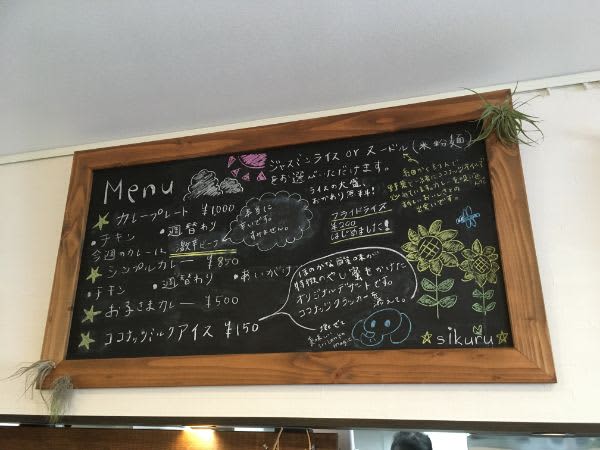 Menu
ジャスミンライス or ヌードル(米粉麺)
をお選びいただけます。
ライスの大盛、
おかわり無料!
フライドライス
¥200
はじめました!
カレープレート ¥1,000
・チキン ・週替わり
今週のカレーは 激辛ビーフ
本当に
辛いです。
すみません。
シンプルカレー ¥850
・チキン ・週替わり ・あいがけ
お子さまカレー ¥500
ココナッツミルクアイス ¥150
ほのかな酸味が
特徴のやし蜜をかけた
オリジナルデザートです。
ココナックラッカーを
添えて。
混ぜて
美味しい
sikuru